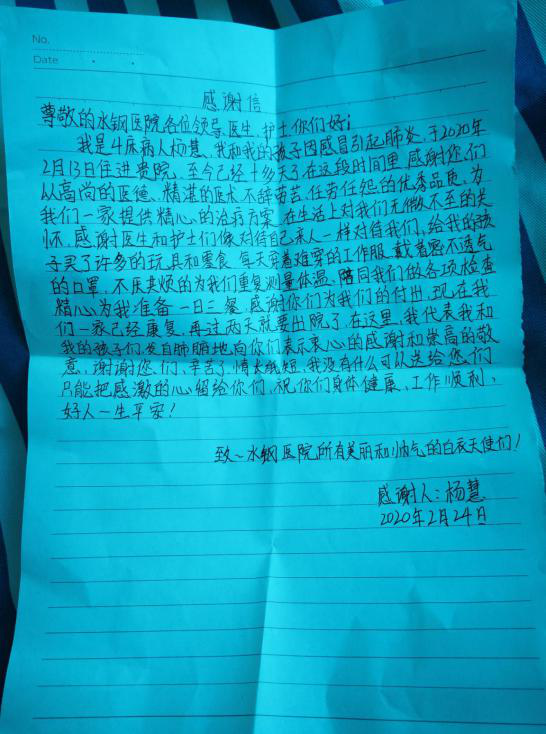 No.
Date
感谢信
尊敬的水钢医院各位领导、医生、护士你们好!
我是4床病人杨慧、我和我的孩子因感冒引起肺炎,于2020年
2月13日住进贵院,至今已经十多天了,在这段时间里,感谢您们
以高尚的医德、精湛的医术、不辞劳苦、任劳任怨的优秀品质,为
我们一家提供精心的治疗方案,在生活上对我们无微不至的关
怀,感谢医生和护士们像对待自己亲人一样对待我们,给我的孩
子买了许多的玩具和零食,每天穿着难穿的工作服,戴着密不透气
的口罩,不厌其烦的为我们重复测量体温、陪同我们做各项检查
精心为我准备一日三餐,感谢你们为我们的付出,现在我
们一家已经康复,再过两天就要出院了,在这里,我代表我和
我的孩子们,发自肺腑地,向你们表示衷心的感谢和崇高的敬
意,谢谢您们、辛苦了,情长纸短,我没有什么可以送给您们
只能把感激的心留给你们,祝你们身体健康、工作顺利、
好人一生平安!
致~水钢医院所有美丽和帅气的白衣天使们!
感谢人:杨慧
2020年2月24日